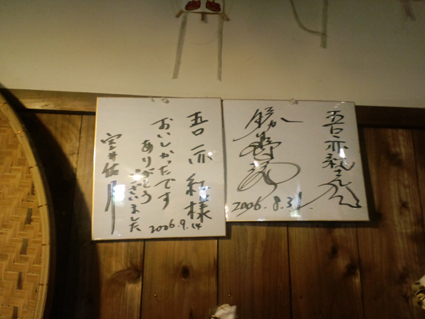 吾亦紅様
おいしかったです
ありがとう
ございました
室井佑月
2006.9.14
吾亦紅さん江
2006.8.31